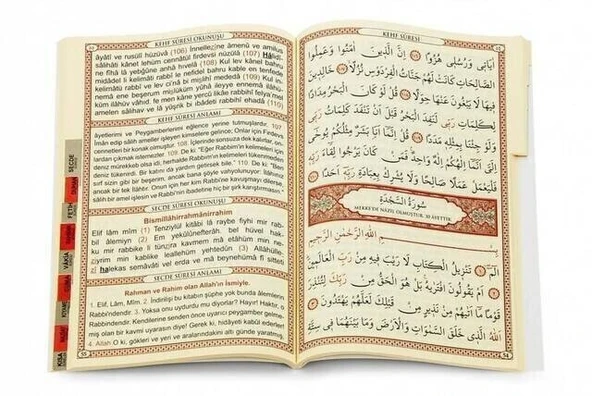 KEHF SÛRESİ OKUNUŞU
âyâtî ve rusulî hüzüvâ (106) İnnellezîne âmenû ve amilus
sâlihâti kânet lehum cennâtül firdevsi nüzülâ (107) Hâlidî-
ne fîhâ lâ yebğûne anhâ hıvelâ (108) Kul lev kânel bahru
midâdel li kelimâti rabbî le nefidel bahru kable en tenfede
kelimâtü rabbî ve lev ci'nâ bi mislihî mededâ (109) Kul in-
nemâ ene beşerum mislüküm yûhâ ileyye ennemâ ilâhu-
küm ilâhüv vâhid, fe men kâne yercû likâe rabbihî felya'mel
amelen sâlihav ve lâ yüşrik bi ibâdeti rabbihî ehadâ (110)
KEHF SÛRESİ ANLAMI
âyetlerimi ve Peygamberlerimi eğlence yerine tutmuşlardır. 107.
İman edip sâlih ameller işleyen kimselere gelince; Onlar için Firdevs
cennetleri konak olmuştur. 108. İçlerinde sonsuza dek kalırlar, on-
lardan çıkmak istemezler. 109. De ki: "Eğer Rabbim'in kelimeleri için
deniz mürekkep olsa idi, herhalde Rabbim'in kelimeleri tükenmeden
deniz tükenirdi. Bir katını da yardım getirsek bile." 110. De ki: "Ben
sırf sizin gibi bir beşerim, ancak bana şöyle vahyolunuyor: İlâhınız
ancak bir tek ilâhtır. Onun için her kim Rabbi'ne kavuşmayı dilerse,
sâlih bir amel işlesin ve Rabbi'nin ibadetine hiç bir şirk karıştırmasın."
SECDE SÛRESİ OKUNUŞU
Bismillâhirrahmânirrahîm
Elif lâm mîm (1) Tenzîylül kitâbi lâ raybe fîyhi mir rab-
bil âlemiyn (2) Em yekûlûnefterâh, bel hüvel hak-
ku mir rabbike li tünzira kavmem mâ etâhüm min ne-
ziyrim min kablike leallehüm yehtedûn (3) Allâhülle-
zî halekas semâvâti vel erda ve mâ beynehümâ fî sitteti
SECDE SÛRESİ ANLAMI
Rahman ve Rahim olan Allah'ın İsmiyle.
1. Elif, Lâm, Mîm. 2. İndirilişi bu kitabın şüphe yok bunda âlemlerin
Rabbi'ndendir. 3. Yoksa onu uydurdu mu diyorlar? Hayır! Haktır, o
Rabbindendir. Kendilerine senden önce uyarıcı peygamber gelme-
miş olan bir kavmi uyarasın diye! Gerek ki, hidâyeti kabül ederler.
4. Allah O ki, gökleri ve yeri ve aralarındakini altı günde yaratmış,
SECDE
FETİH
VÂKIA
CUMA
KISA
KEHF SÛRESİ
اٰيَات۪ي وَرُسُل۪ي هُزُوًا ﴿١٠٦﴾ اِنَّ الَّذ۪ينَ اٰمَنُوا وَعَمِلُوا
الصَّالِحَاتِ كَانَتْ لَهُمْ جَنَّاتُ الْفِرْدَوْسِ نُزُلًا ﴿١٠٧﴾ خَالِد۪ينَ
ف۪يهَا لَا يَبْغُونَ عَنْهَا حِوَلًا ﴿١٠٨﴾ قُلْ لَوْ كَانَ الْبَحْرُ مِدَادًا
لِكَلِمَاتِ رَبّ۪ي لَنَفِدَ الْبَحْرُ قَبْلَ اَنْ تَنْفَدَ كَلِمَاتُ رَبّ۪ي
وَلَوْ جِئْنَا بِمِثْلِه۪ مَدَدًا ﴿١٠٩﴾ قُلْ اِنَّمَٓا اَنَا۬ بَشَرٌ مِثْلُكُمْ يُوحٰٓى
اِلَيَّ اَنَّمَٓا اِلٰهُكُمْ اِلٰهٌ وَاحِدٌ فَمَنْ كَانَ يَرْجُوا لِقَٓاءَ رَبِّه۪
فَلْيَعْمَلْ عَمَلًا صَالِحًا وَلَا يُشْرِكْ بِعِبَادَةِ رَبِّه۪ٓ اَحَدًا ﴿١١٠﴾
سُورَةُ السَّجْدَةِ
MEKKE'DE NAZİL OLMUŞTUR. 30 AYETTİR.
بِسْمِ اللّٰهِ الرَّحْمٰنِ الرَّح۪يمِ
الٓمٓ ﴿١﴾ تَنْز۪يلُ الْكِتَابِ لَا رَيْبَ ف۪يهِ مِنْ رَبِّ الْعَالَم۪ينَ
﴿٢﴾ اَمْ يَقُولُونَ افْتَرٰيهُ بَلْ هُوَ الْحَقُّ مِنْ رَبِّكَ لِتُنْذِرَ
قَوْمًا مَٓا اَتٰيهُمْ مِنْ نَذ۪يرٍ مِنْ قَبْلِكَ لَعَلَّهُمْ يَهْتَدُونَ ﴿٣﴾
اَللّٰهُ الَّذ۪ي خَلَقَ السَّمٰوَاتِ وَالْاَرْضَ وَمَا بَيْنَهُمَا ف۪ي سِتَّةِ
54